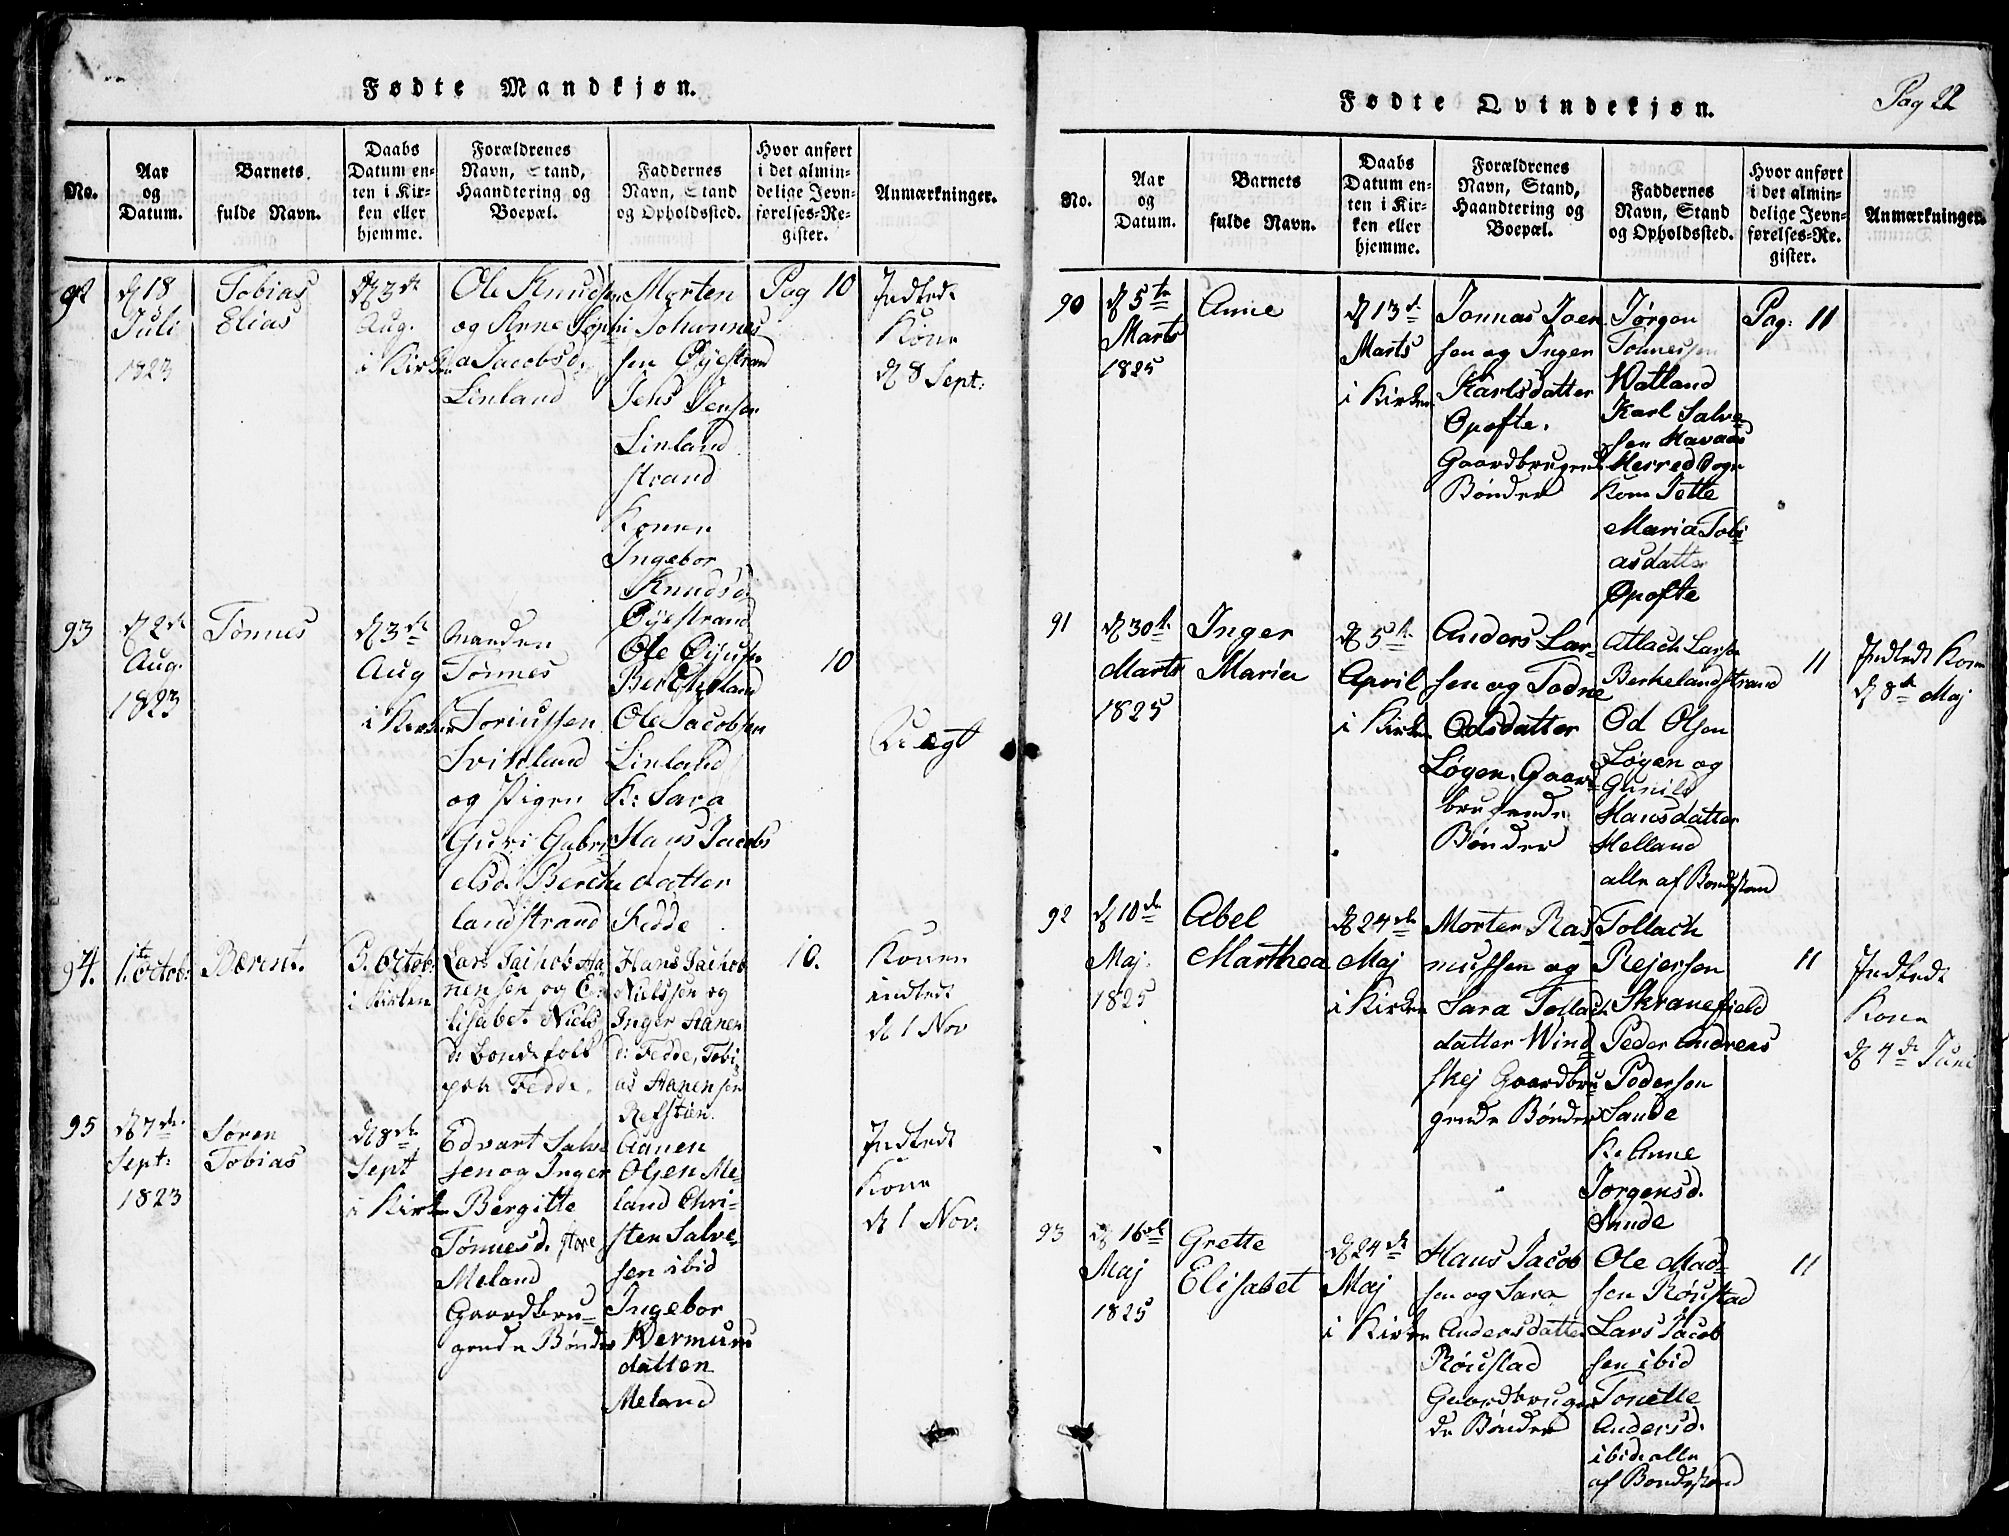 Fødte Mandkjøn.
No.
Aar
og
Datum.
Barnets
fulde Navn.
Daabs
Datum en-
ten i Kir-
ken eller
hjemme.
Forældrenes
Navn, Stand,
Haandtering og
Boepæl.
Faddernes
Navn, Stand
og Opholdssted.
Hvor anført
i det almin-
delige Jevn-
førelses-Re-
gister.
Anmærkninger.
92
d 18
Juli
1823
Tobias
Elias
d 3de
Aug.
i Kirken
Ole Knudsen
og Anne Sophi
a Jacobsd.
Linland
Morten
Johannes
sen Øyestrand
Jens Jensen
Linland
strand
Konen
Ingebor
Knudsd.
Øyestrand
Pag 10
Indledt
Kone
d 8 Sept:
93
d 2de
Aug.
1823
Tønnes
d 3de
Aug
i Kirken
Manden
Tønnes
Toriussen
Svinland
og Pigen
Guri Gabri
elsd. Berche
landstrand
Ole
Bercheland
Ole Jacobsen
Linland
K: Sara
Hans Jacobs
datter
Fedde
10
Uægt
94.
1te Octob:
Bærent.
5. Octob:
i Kirken
Lars Jachob Aa
nensen og E
lisabet Niels
d: bondefolk
paa Fedde.
Hans Jachob
Nielssen og
Inger Aanen
d: Fedde, Tobi
as Aanensen
Refstien.
10.
Konen
indledt
d 1 Nov
95
d 7de
Sept:
1823
Søren
Tobias
d 8de
Sept
i Kirken
Edvart Salve
sen og Inger
Bergitte
Tønnesd. store
Meland
Gaardbru-
gende Bønder
Aanen
Olsen Me-
land Chri-
sten Salve-
sen ibid
Ingebor
Vermun
datten
Meland
Indledt
Kone
d 1 Nov:
Fødte Qvindekjøn.
Pag 22
No.
Aar
og
Datum.
Barnets
fulde Navn.
Daabs
Datum en-
ten i Kir-
ken eller
hjemme.
Forældrenes
Navn, Stand,
Haandtering og
Boepæl.
Faddernes
Navn, Stand
og Opholdssted.
Hvor anført
i det almin-
delige Jevn-
førelses-Re-
gister.
Anmærkninger.
90
d 5te
Marts
1825
Anne
d 13de
Marts
i Kirken
Jonnas Joen
sen og Inger
Karlsdatter
Opofte.
Gaardbrugende
Bønder
Jørgen
Tønnessen
Watland
Karl Salve
sen Havaas
Herred Sogn
Kone Jette
Maria Tobi
asdatter
Opofte
Pag: 11
91
d 30te
Marts
1825
Inger
Maria
d 5te
April
i Kirken
Anders Lar-
sen og Todne
Odsdatter
Løgen. Gaard
brugende
Bønder
Atlach Larsen
Berkelandstrand
Od Olsen
Løgen og
Gunild
Hansdatter
Helland
alle af Bondestand
11
Indledt Kone
d 8de Maj
92
d 10de
Maj.
1825
Abel
Marthea
d 24de
Maj
i Kirken
Morten Ras
mussen og
Sara Tollach
datter Wind
skej Gaardbru
gende Bønder
Tollach
Rejersen
Skranefield
Peder Andreas
Pedersen
Sande
K: Anne
Jørgensd.
Sande
11
Indledt
Kone
d 4de Juni
93
d 16de
Maj
1825
Grette
Elisabet
d 24de
Maj
i Kirken
Hans Jacob
sen og Sara
Andersdatter
Røustad
Gaardbrugen
de Bønder
Ole Mad-
sen Røustad
Lars Jacob
sen ibid
Tonette
Andersd.
ibid: alle
af Bondestand
11